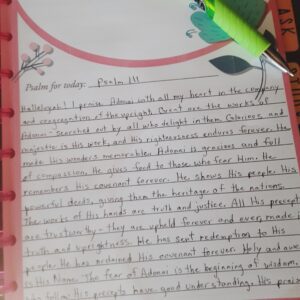 ASK
Psalm for today: Psalm 111
Halleluyah! I praise Adonai with all my heart in the company
and congregation of the upright. Great are the works of
Adonai - searched out by all who delight in them. Glorious and
majestic is His work, and His righteousness endures forever. He
made His wonders memorable. Adonai is gracious and full
of compassion. He gives food to those who fear Him. He
remembers His covenant forever. He shows His people His
powerful deeds, giving them the heritage of the nations.
The works of His hands are truth and justice. All His precepts
are trustworthy - they are upheld forever and ever, made in
truth and uprightness. He has sent redemption to His
people. He has ordained His covenant forever. Holy and awe
is His Name. The fear of Adonai is the beginning of wisdom.
who follow His precepts have good understanding. His praise